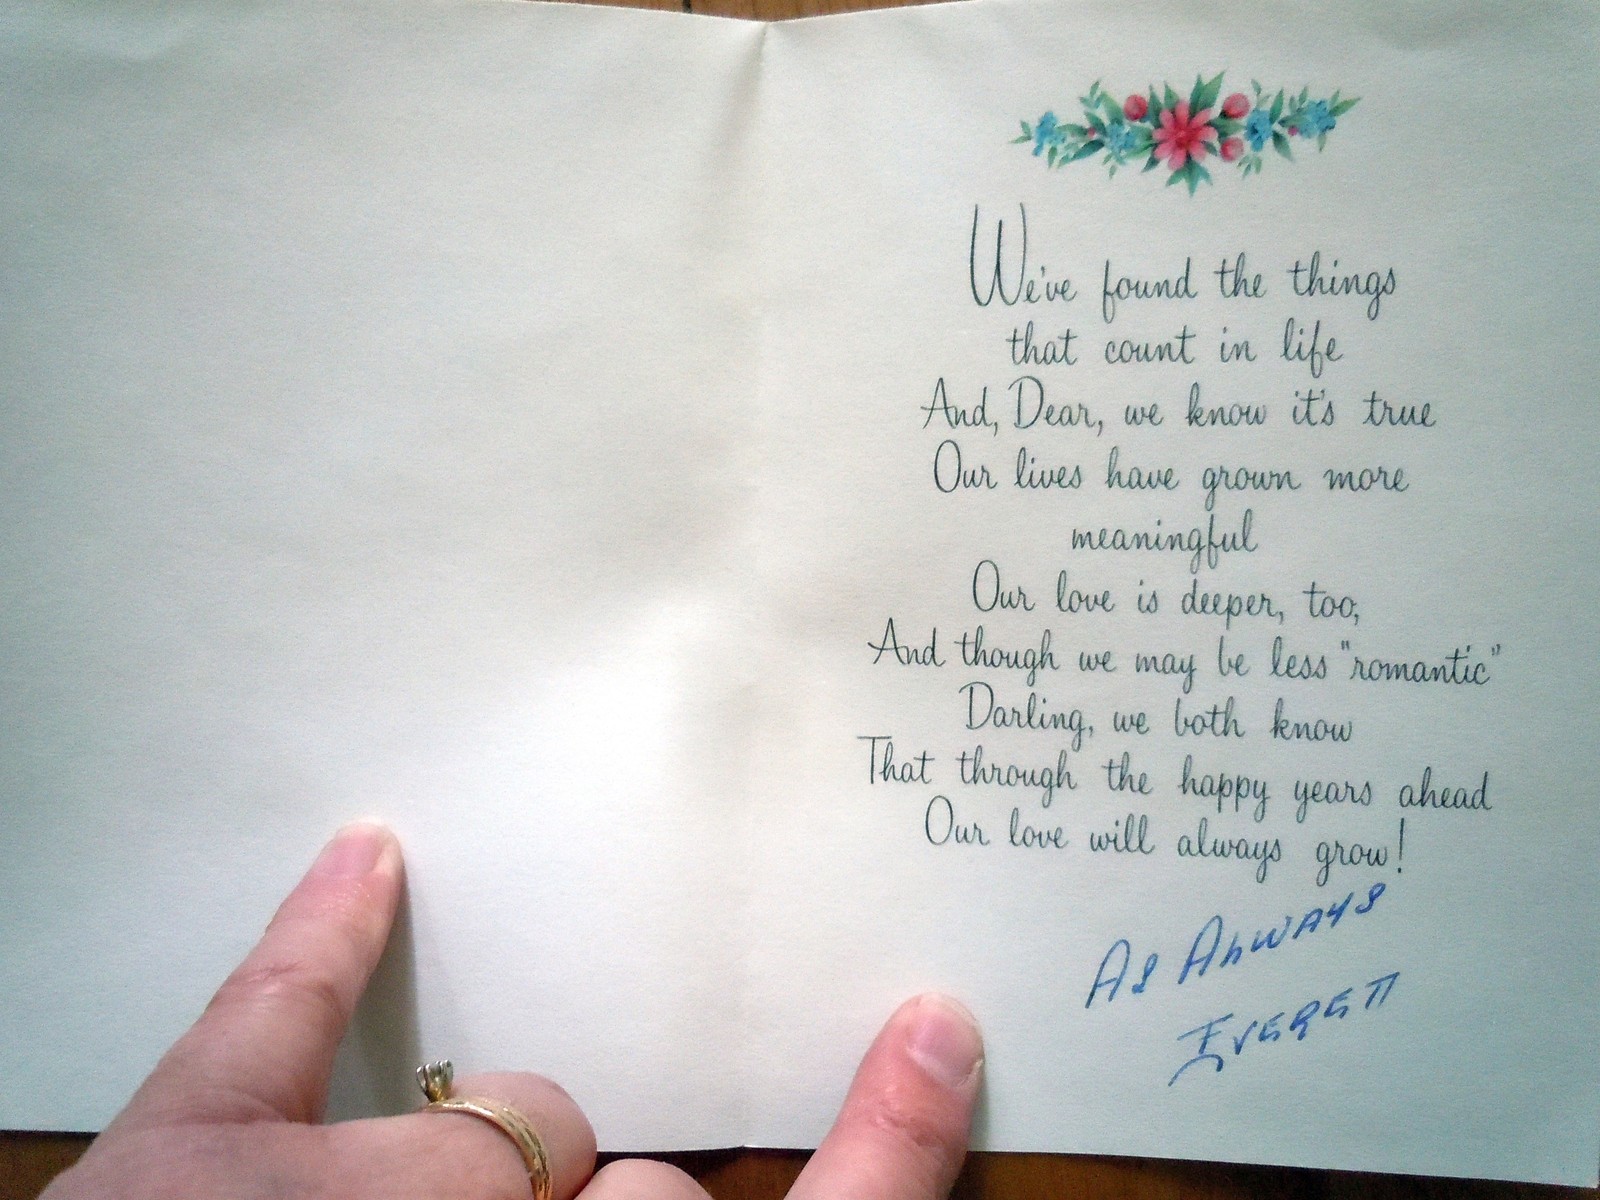 We've found the things
that count in life
And, Dear, we know it's true
Our lives have grown more
meaningful
Our love is deeper, too;
And though we may be less "romantic"
Darling, we both know
That through the happy years ahead
Our love will always grow!
As Always
Everett